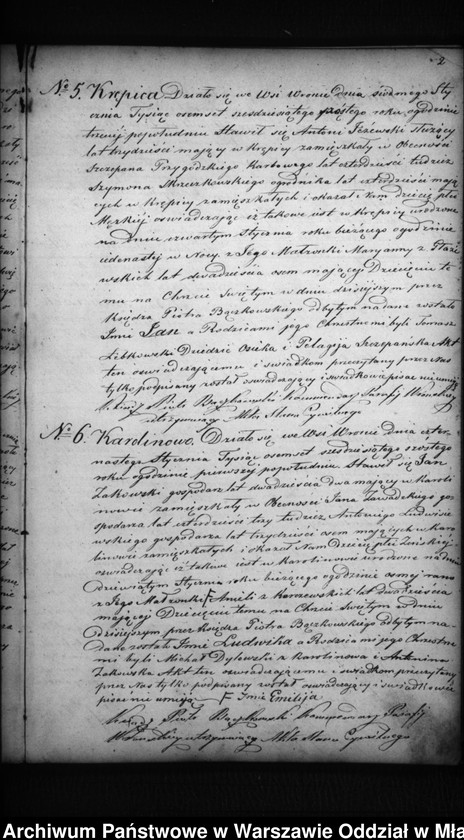 2
No 5. Krępica Działo się we Wsi Wronie dnia siódmego Sty¬
cznia Tysiąc osiemset sześdziesiątego roku, ogodzinie
trzeciej popołudniu Stawił się Antoni Jeżewski służący
lat trzydzieści mający w Krępicy zamięszkały w Obecności
Szczepana Przygódzkiego Karbowego lat czterdzieści tudzież
Szymona ogrodnika lat czterdzieści mają
cych w Krępicy zamięszkałych i okazał Nam dziecię płci
Męzkiej oświadczając iż takowe iest w Krępicy urodzone
na dniu czwartym Stycznia roku bieżącego ogodzinie
iedenastej w Nocy z Jego Małżonki Maryanny z
wskich lat dwadzieścia osm mającej Dziecięciu te
mu na Chrzcie Swiętym w dniu dzisiejszym przez
Księdza Piotra Bączkowskiego odbytym nadane zostało
Imie Jan a Rodzicami jego Chrzestnemi byli Tomasz
Dziedzic i Pelagija Szczepańska Akt
ten oświadczaiącemu i świadkom przeczytany przez Nas
tylko podpisany został oświadczaiący i świadkowie pisać nieumieją
Piotr Bączkowski Komendarz Parafij
utrzymujący Akta Stanu Cywilnego
No 6. Karolinowo. Działo się we Wsi Wronie dnia czter¬
nastego Stycznia Tysiąc osiemset sześdziesiątego szóstego
roku ogodzinie pierwszej popołudniu Stawił się Jan
Żakowski gospodarz lat dwadzieścia dwa mający w Karoli
nowie zamięszkały w Obecności Jana Zawadzkiego gos
podarza lat czterdzieści trzy tudzież Antoniego Ludwisie
wskiego gospodarza lat trzydzieści osm mających w Karo
linowie zamięszkałych i okazał Nam Dziecię płci Żeńskiej
oświadczając iż takowe iest w Karolinowie urodzone na dniu
dziewiątym Stycznia roku bieżącego ogodzinie osmej rano
z Jego Małżonki Amelii z lat dwadzieścia
mającej Dziecięciu temu na Chrzcie Swiętym w dniu
dzisiejszym przez Księdza Piotra Bączkowskiego odbytym na¬
dane zostało Imie Ludwika a Rodzicami jego Chrzestne
mi byli Michał z Karolinowa i Antonina
Żakowska Akt ten oświadczaiącemu i świadkom przeczytany
przez Nas tylko podpisany został oświadczaiący i świadkowie
pisać nie umieją Imie Emilija
Piotr Bączkowski Komendarz Parafij
utrzymujący Akta Stanu Cywilnego
Archiwum Państwowe w Warszawie Oddział w Mła